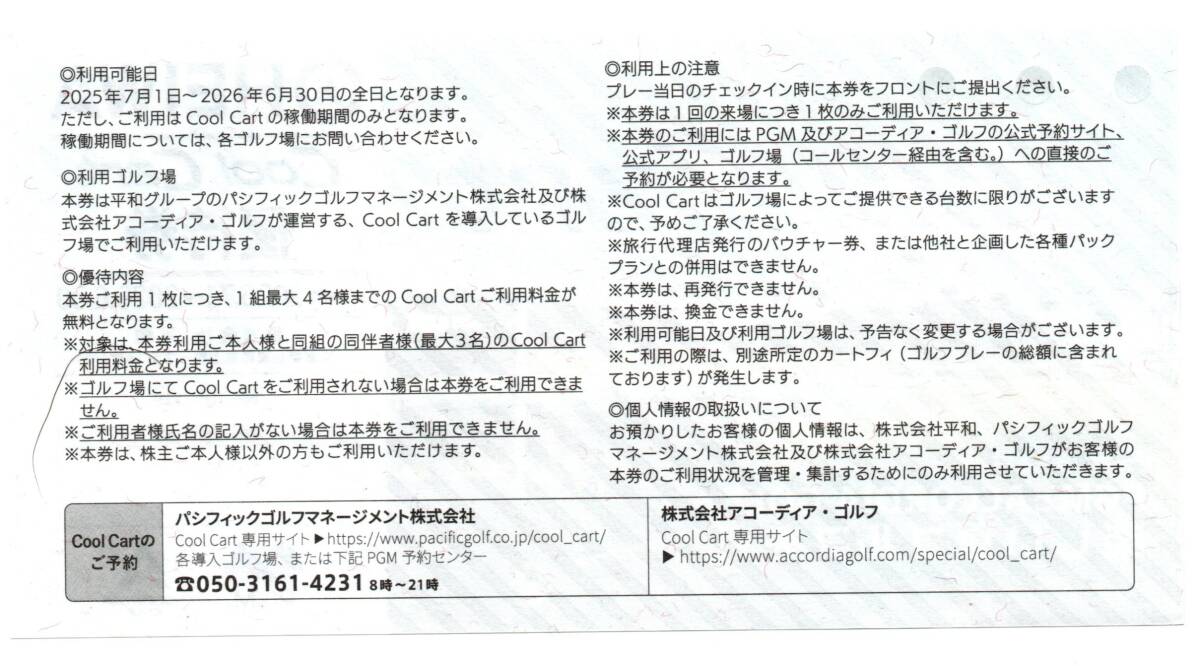 ◎利用可能日
2025年7月1日～2026年6月30日の全日となります。
ただし、ご利用は Cool Cart の稼働期間のみとなります。
稼働期間については、各ゴルフ場にお問い合わせください。
◎利用ゴルフ場
本券は平和グループのパシフィックゴルフマネージメント株式会社及び株
式会社アコーディア・ゴルフが運営する、Cool Cart を導入しているゴル
フ場でご利用いただけます。
◎優待内容
本券ご利用1枚につき、1組最大4名様までの Cool Cart ご利用料金が
無料となります。
※対象は、本券利用ご本人様と同組の同伴者様(最大3名)のCool Cart
利用料金となります。
※ゴルフ場にて Cool Cart をご利用されない場合は本券をご利用できま
せん。
※ご利用者様氏名の記入がない場合は本券をご利用できません。
※本券は、株主ご本人様以外の方もご利用いただけます。
◎利用上の注意
プレー当日のチェックイン時に本券をフロントにご提出ください。
※本券は1回の来場につき1枚のみご利用いただけます。
※本券のご利用には PGM 及びアコーディア・ゴルフの公式予約サイト、
公式アプリ、ゴルフ場（コールセンター経由を含む。）への直接のご
予約が必要となります。
※Cool Cartはゴルフ場によってご提供できる台数に限りがございます
ので、予めご了承ください。
※旅行代理店発行のバウチャー券、または他社と企画した各種パック
プランとの併用はできません。
※本券は、再発行できません。
※本券は、換金できません。
※利用可能日及び利用ゴルフ場は、予告なく変更する場合がございます。
※ご利用の際は、別途所定のカートフィ（ゴルフプレーの総額に含まれ
ております）が発生します。
◎個人情報の取扱いについて
お預かりしたお客様の個人情報は、株式会社平和、パシフィックゴルフ
マネージメント株式会社及び株式会社アコーディア・ゴルフがお客様の
本券のご利用状況を管理・集計するためにのみ利用させていただきます。
Cool Cartの
ご予約
パシフィックゴルフマネージメント株式会社
Cool Cart 専用サイト ▶https://www.pacificgolf.co.jp/cool_cart/
各導入ゴルフ場、または下記 PGM 予約センター
☎050-3161-4231 8時～21時
株式会社アコーディア・ゴルフ
Cool Cart 専用サイト
▶ https://www.accordiagolf.com/special/cool_cart/